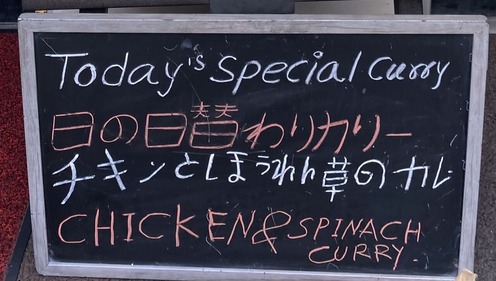 Today's Special Curry
日の日替わりカリー
チキンとほうれん草のカレ
CHICKEN & SPINACH
CURRY.